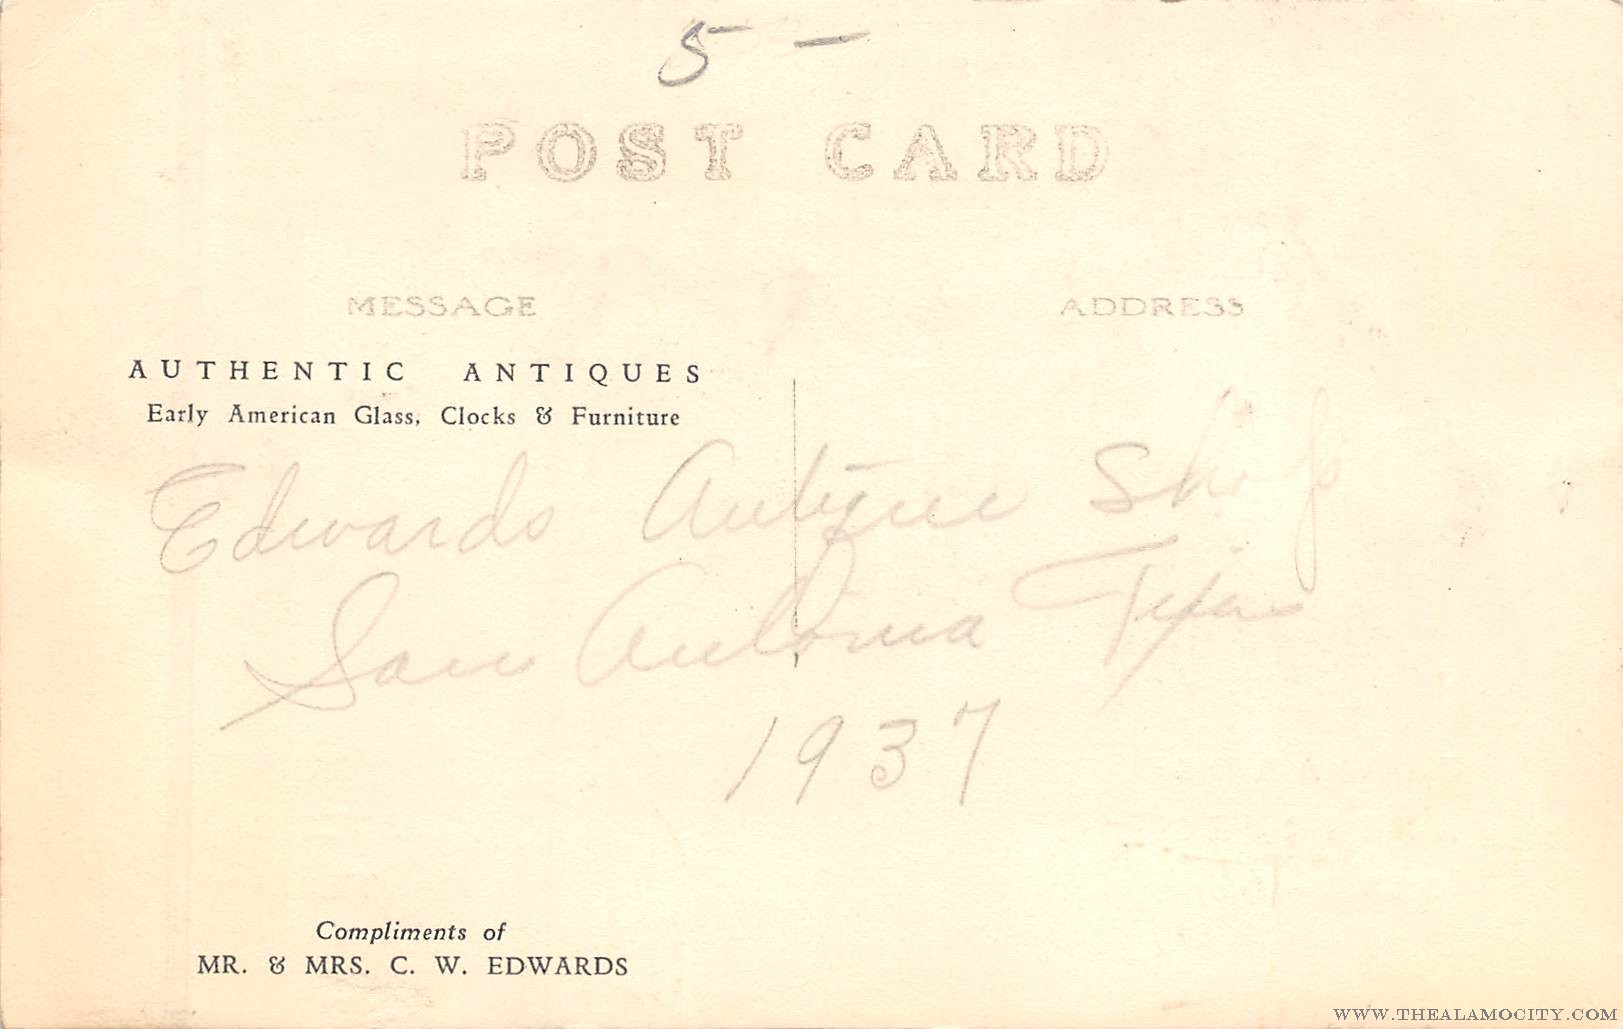 5 —
POST CARD
MESSAGE
ADDRESS
AUTHENTIC ANTIQUES
Early American Glass, Clocks & Furniture
Edwards Antique Shop
San Antonia Texas
1937
Compliments of
MR. & MRS. C. W. EDWARDS
WWW.THEALAMOCITY.COM